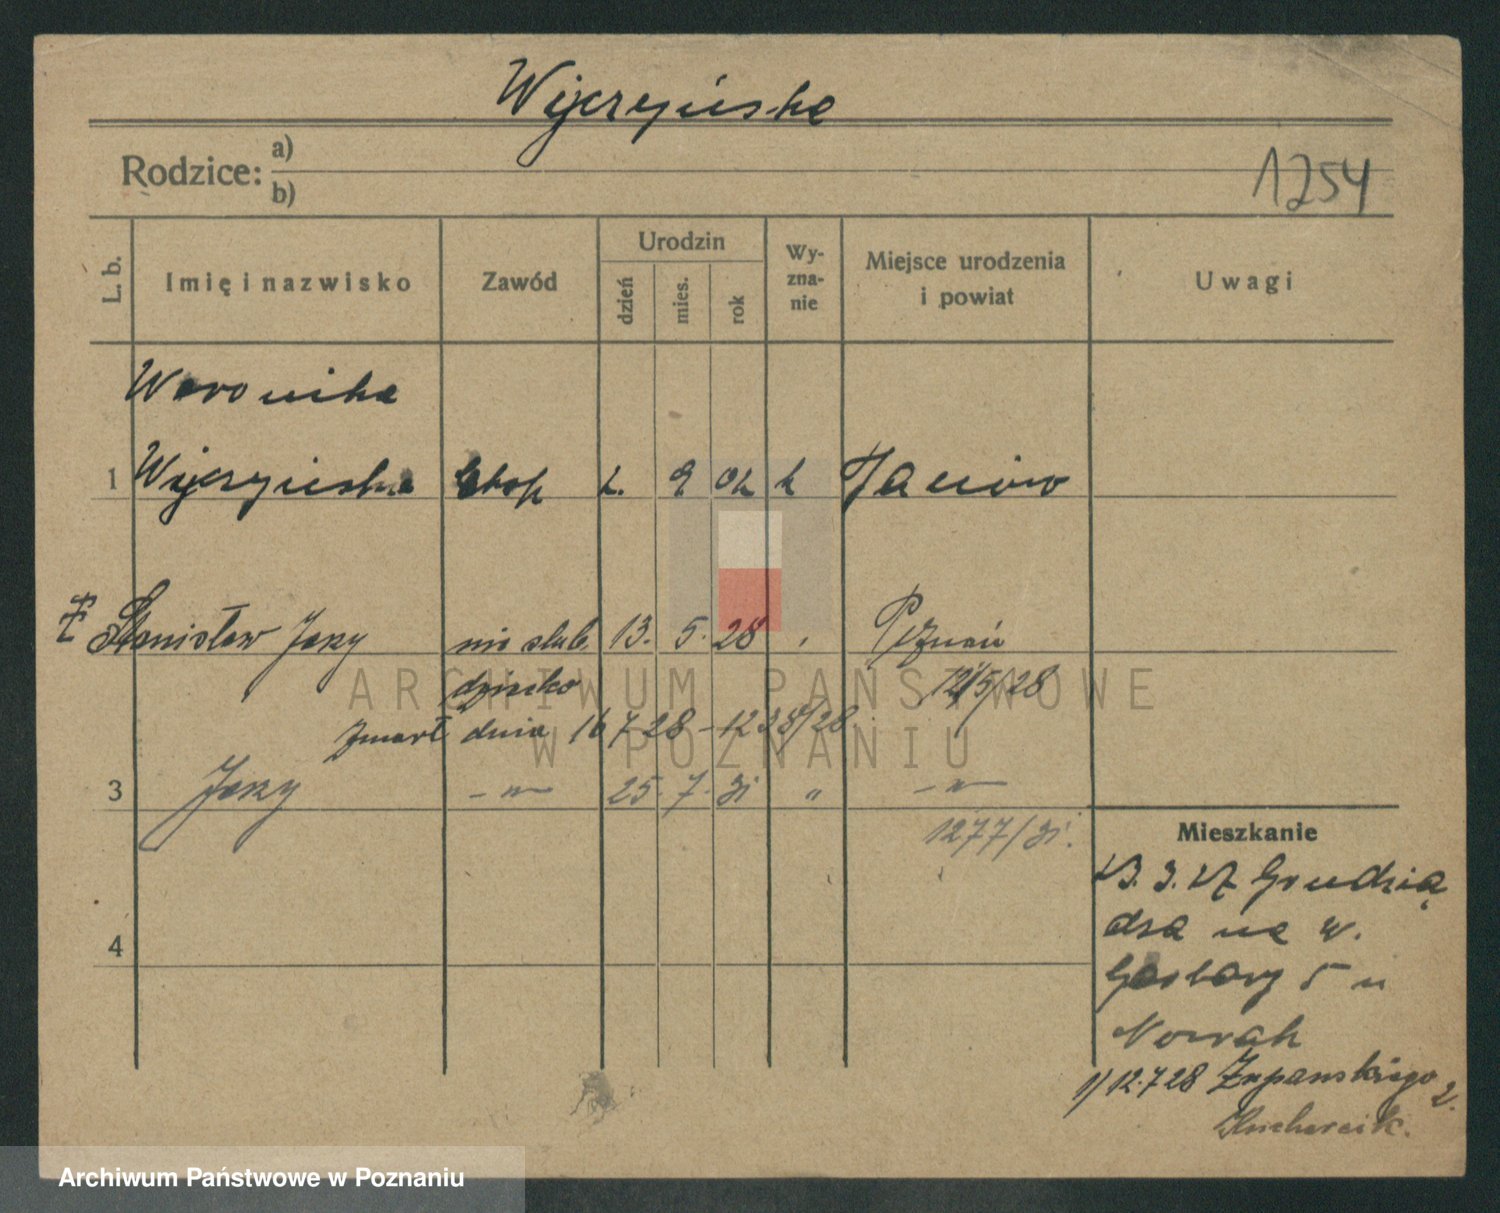 Wyczyńska
Rodzice: a)
b)
1254
L. b.
Imię i nazwisko
Zawód
Urodzin
dzień
mies.
rok
Wy-
zna-
nie
Miejsce urodzenia
i powiat
Uwagi
Weronika
1 Wyczyńska 2. 9 02 k
Stanisław Jerzy nieślub. 13. 5. 28 Poznań
dziecko 1215/28
zmarł dnia 16 7 28 - 1238/28
3 Jerzy -"- 25. 7. 31 " -"-
1277/31.
4
Mieszkanie
23. 3. 27 Grudzią
dza na w.
Garbary 5 u
Nowak
1) 12.7 28 Żupańskiego 2.
Kucharcik.
ARCHIWUM PAŃSTWOWE
W POZNANIU
Archiwum Państwowe w Poznaniu